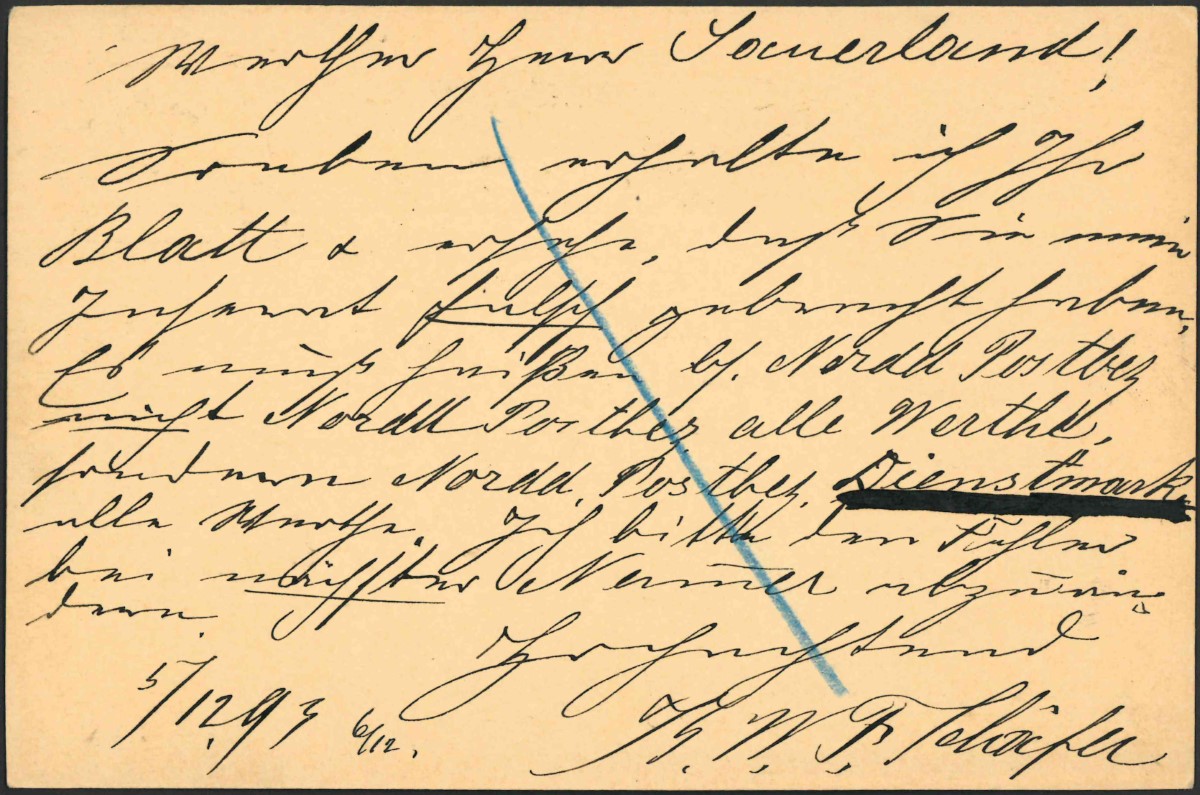 Werther Herr Sauerland!
Soeben erhalte ich Ihr
Blatt & ersehe, daß Sie mein
Inserat falsch gebracht haben,
Es muß heißen bz. Nordd Postbez
nicht Nordd Postbez alle Werthe,
sondern Nordd. Postbez. Dienstmark
alle Werthe. Ich bitte den Fehler
bei nächster Numer abzuän
dern.
Hochachtend
5/12 93 6/12. W. F. Schäfer